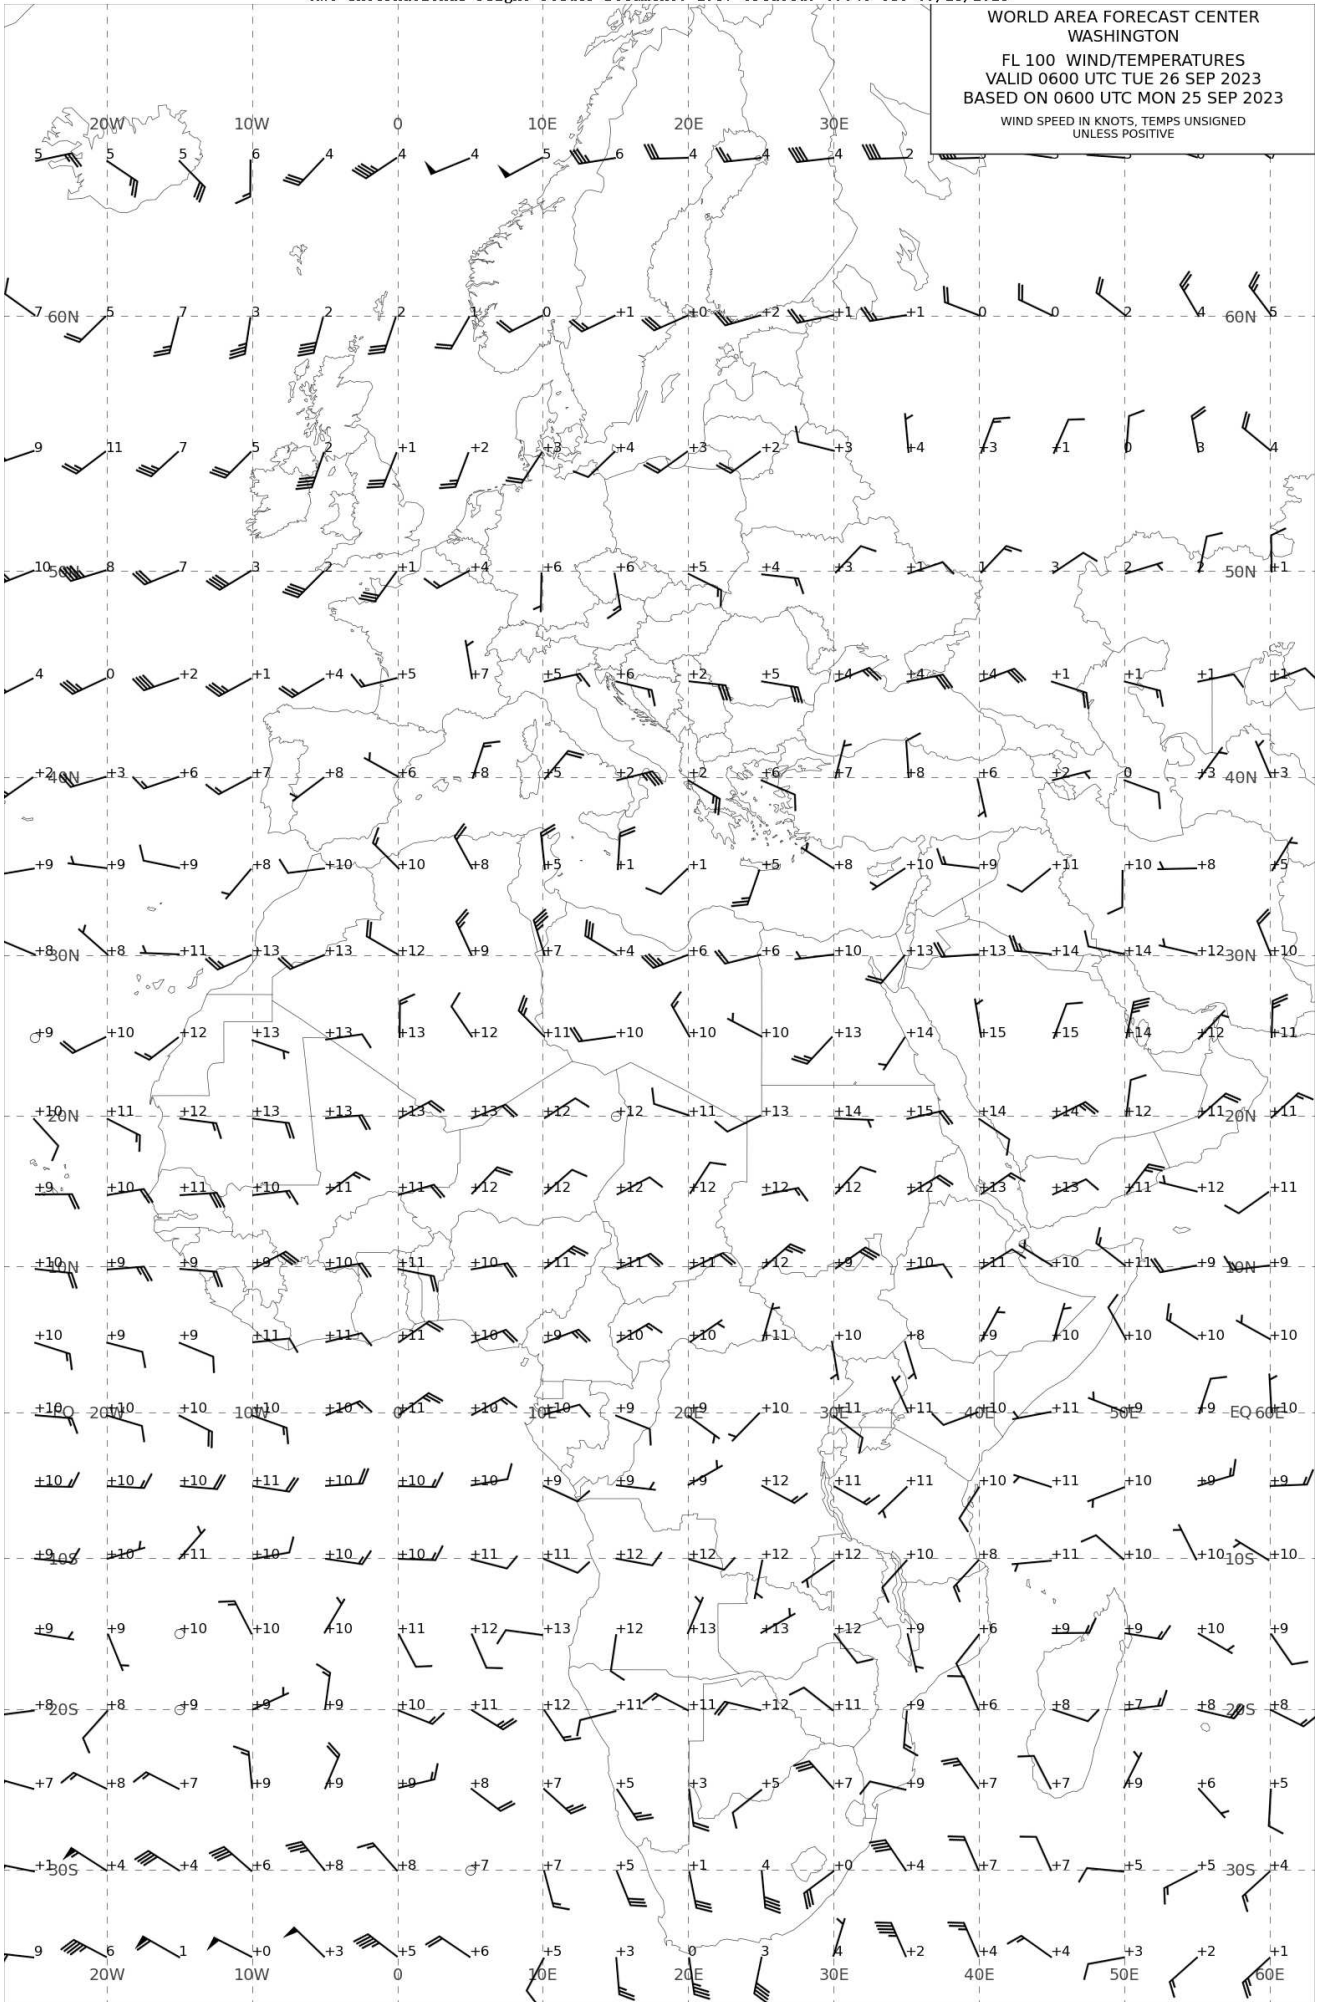 WORLD AREA FORECAST CENTER
WASHINGTON
FL 100 WIND/TEMPERATURES
VALID 0600 UTC TUE 26 SEP 2023
BASED ON 0600 UTC MON 25 SEP 2023
WIND SPEED IN KNOTS, TEMPS UNSIGNED
UNLESS POSITIVE
20W 10W 0 10E 20E 30E
5 5 5 6 4 4 4 5 6 4 4 4 2
7 60N 5 7 3 2 2 1 0 +1 +0 +2 +1 +1 0 0 2 4 60N 5
9 11 7 5 2 +1 +2 +3 +4 +3 +2 +3 +4 +3 +1 0 3 4
10 50N 8 7 3 2 +1 +4 +6 +6 +5 +4 +3 +1 1 3 2 2 50N +1
4 0 +2 +1 +4 +5 +7 +5 +6 +2 +5 +4 +4 +4 +1 +1 +1 +1
+2 40N +3 +6 +7 +8 +6 +8 +5 +2 +2 +6 +7 +8 +6 +2 0 +3 40N +3
+9 +9 +9 +8 +10 +10 +8 +5 +1 +1 +5 +8 +10 +9 +11 +10 +8 +5
+8 30N +8 +11 +13 +13 +12 +9 +7 +4 +6 +6 +10 +13 +13 +14 +14 +12 30N +10
+9 +10 +12 +13 +13 +13 +12 +11 +10 +10 +10 +13 +14 +15 +15 +14 +12 +11
+10 20N +11 +12 +13 +13 +13 +13 +12 +12 +11 +13 +14 +15 +14 +14 +12 +11 20N +11
+9 +10 +11 +10 +11 +11 +12 +12 +12 +12 +12 +12 +12 +13 +13 +11 +12 +11
+10 10N +9 +9 +9 +10 +11 +10 +11 +11 +11 +12 +9 +10 +11 +10 +11 +9 10N +9
+10 +9 +9 +11 +11 +11 +10 +9 +10 +10 +11 +10 +8 +9 +10 +10 +10 +10
+10 EQ 20W +10 +10 10W +10 +10 0 +11 +10 10E +10 +9 20E +9 +10 30E +11 +11 40E +10 +11 50E +9 +9 EQ 60E +10
+10 +10 +10 +11 +10 +10 +10 +9 +9 +9 +12 +11 +11 +10 +11 +10 +9 +9
+9 10S +10 +11 +10 +10 +10 +11 +11 +12 +12 +12 +12 +10 +8 +11 +10 +10 10S +10
+9 +9 +10 +10 +10 +11 +12 +13 +12 +13 +13 +12 +9 +6 +9 +9 +10 +9
+8 20S +8 +9 +9 +9 +10 +11 +12 +11 +11 +12 +11 +9 +6 +8 +7 +8 20S +8
+7 +8 +7 +9 +9 +9 +8 +7 +5 +3 +5 +7 +9 +7 +7 +9 +6 +5
+1 30S +4 +4 +6 +8 +8 +7 +7 +5 +1 4 +0 +4 +7 +7 +5 +5 30S +4
9 6 1 +0 +3 +5 +6 +5 +3 0 3 4 +2 +4 +4 +3 +2 +1
20W 10W 0 10E 20E 30E 40E 50E 60E